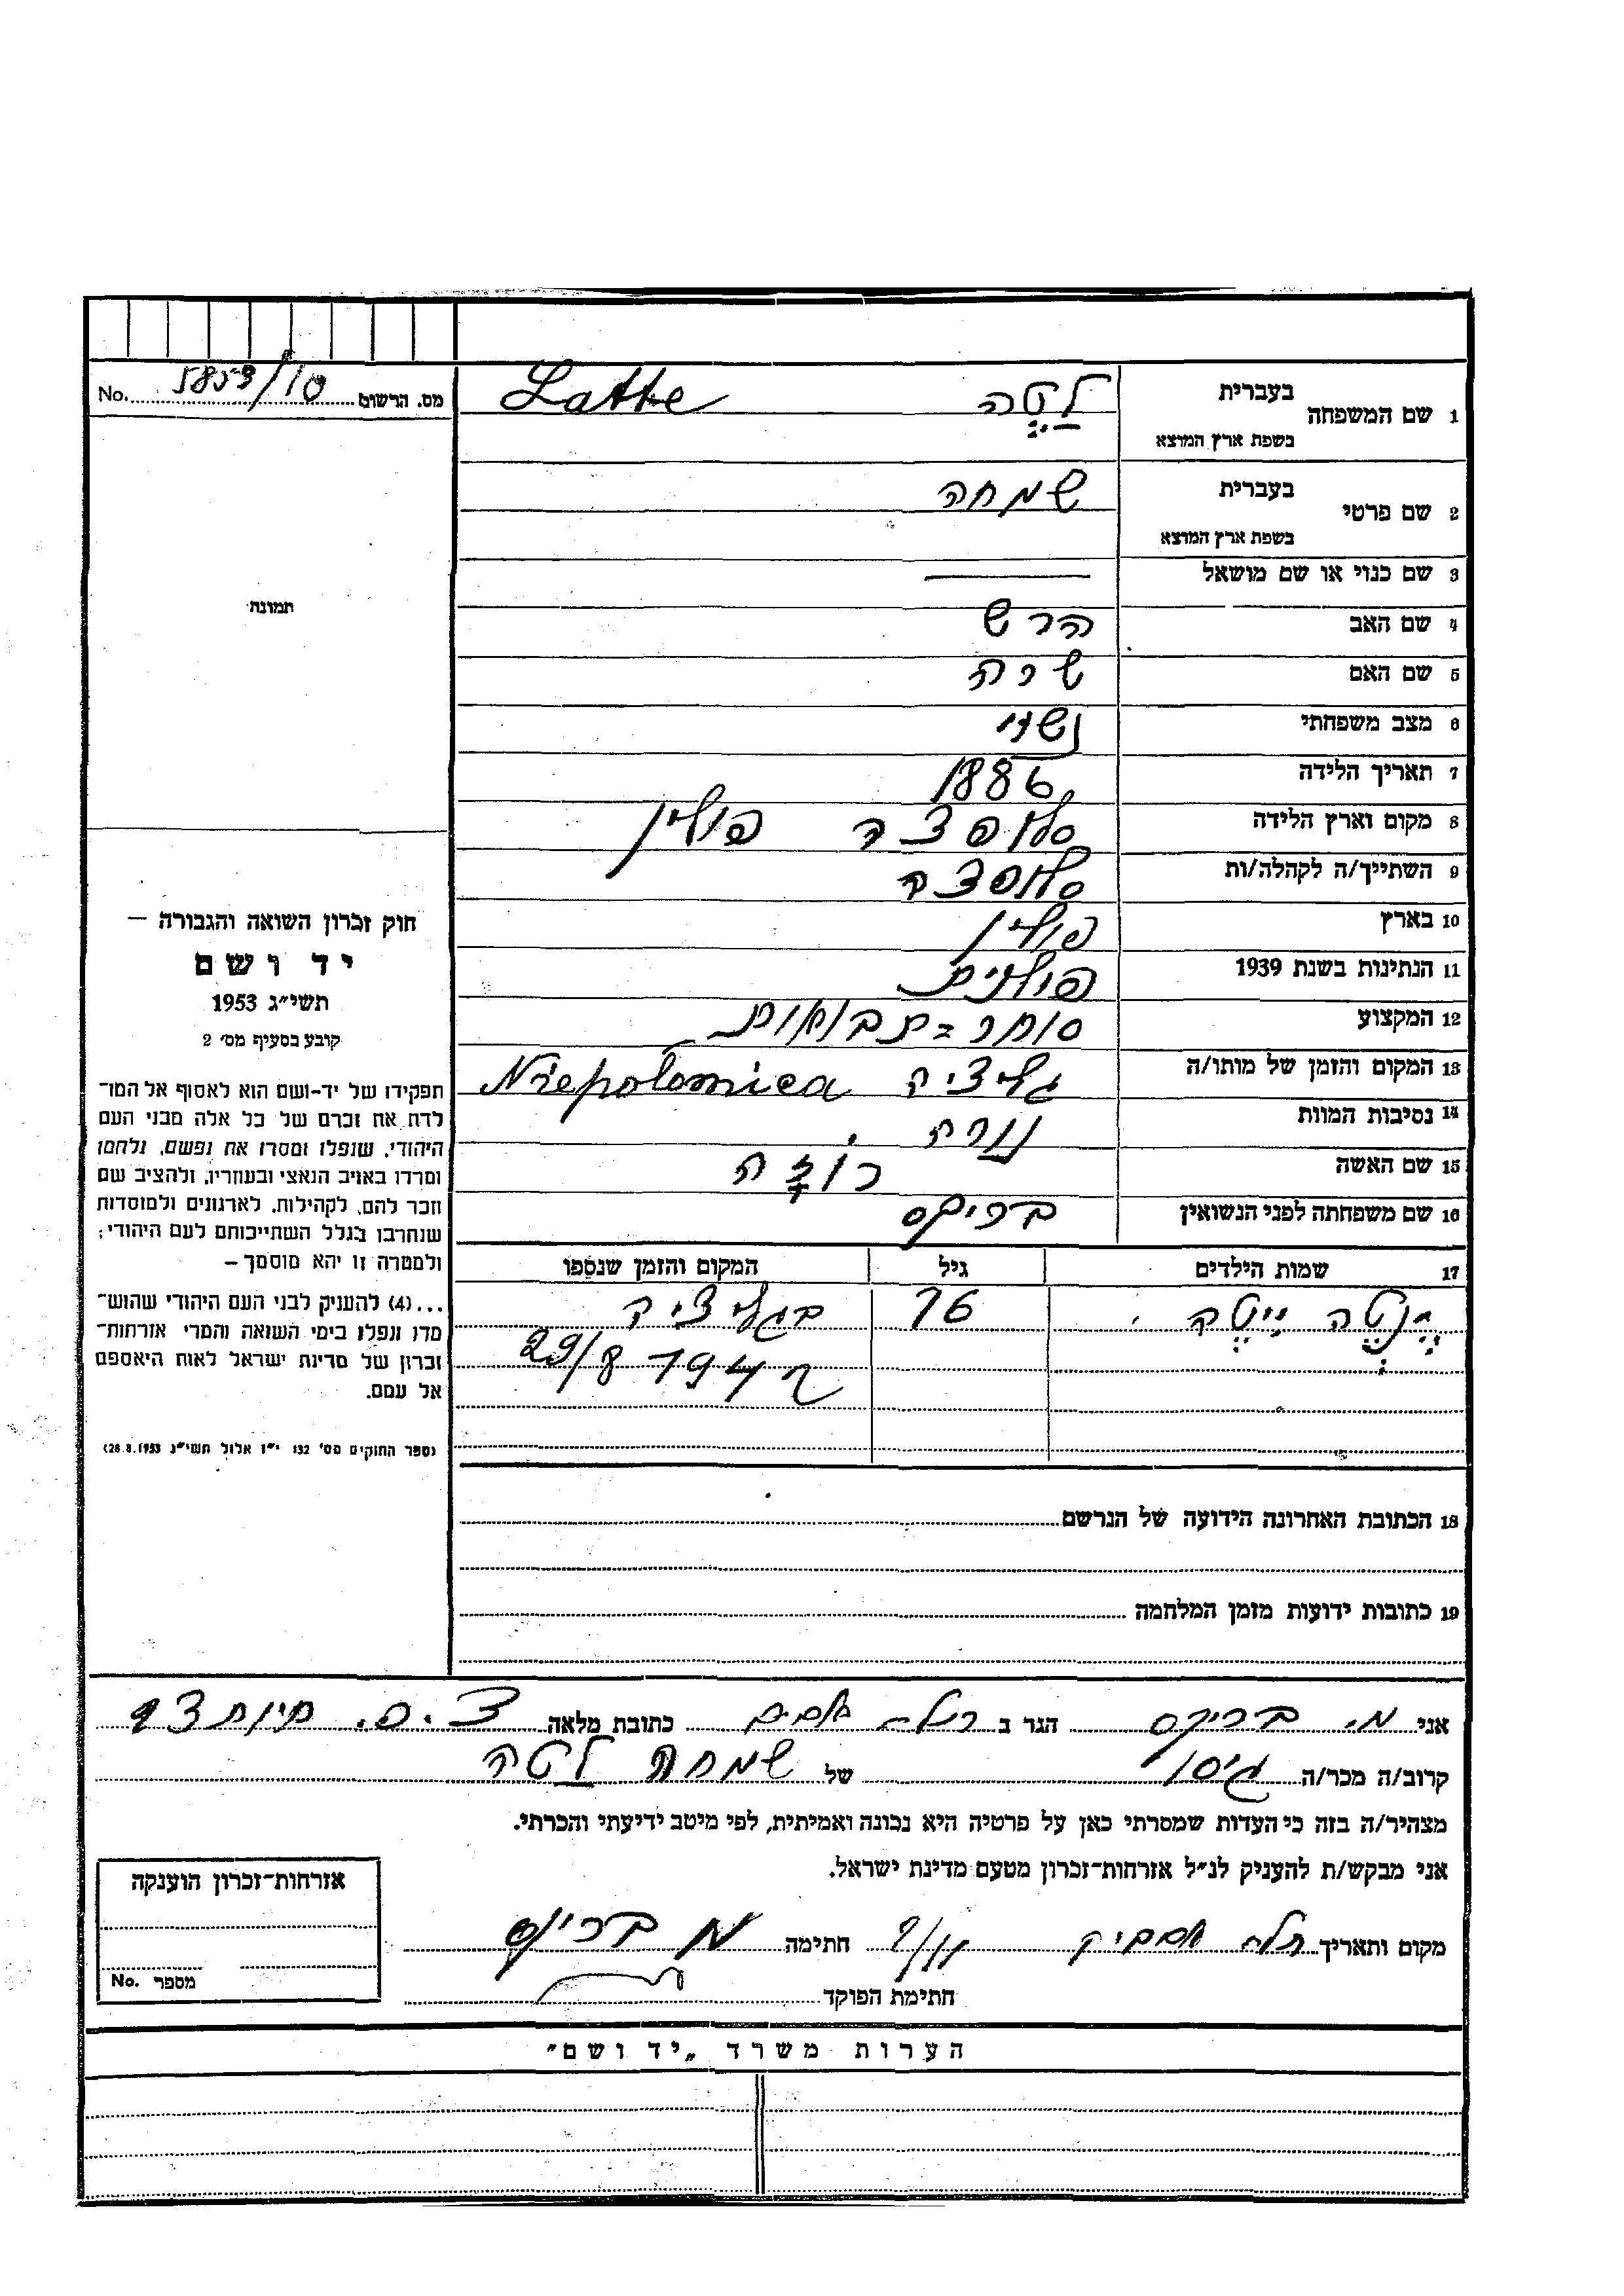 מס. הרשום 5853/10 No.
1 שם המשפחה
בעברית לַטֶה Latte
בשפת ארץ המוצא
2 שם פרטי
בעברית שמחה
בשפת ארץ המוצא
3 שם כנוי או שם מושאל
4 שם האב הרש
5 שם האם שרה
6 מצב משפחתי נשוי
7 תאריך הלידה 1886
8 מקום וארץ הלידה פולין
9 השתייך/ה לקהלה/ות
10 בארץ פולין
11 הנתינות בשנת 1939 פולנית
12 המקצוע סוחר-תבואות
13 המקום והזמן של מותו/ה גליציה Niepolomica
14 נסיבות המוות נורה
15 שם האשה רוזה
16 שם משפחתה לפני הנשואין בריקס
17 שמות הילדים גיל המקום והזמן שנספו
יֶנטֶה 16 בגליציה
29/8 1942
18 הכתובת האחרונה הידועה של הנרשם
19 כתובות ידועות מזמן המלחמה
תמונה
חוק זכרון השואה והגבורה —
יד ושם
תשי״ג 1953
קובע בסעיף מס׳ 2
תפקידו של יד-ושם הוא לאסוף אל המו־
לדת את זכרם של כל אלה מבני העם
היהודי, שנפלו ומסרו את נפשם, נלחמו
ומרדו באויב הנאצי ובעוזריו, ולהציב שם
וזכר להם, לקהילות, לארגונים ולמוסדות
שנחרבו בגלל השתייכותם לעם היהודי;
ולמטרה זו יהא מוסמך –
...(4) להעניק לבני העם היהודי שהוש־
מדו ונפלו בימי השואה והמרי אזרחות־
זכרון של מדינת ישראל לאות היאספם
אל עמם.
(ספר החוקים מס׳ 132 י״ז אלול תשי״ג 28.8.1953)
אני מ. בריקס הגר ב כתובת מלאה
קרוב/ה מכר/ה גיסו של שמחה לטה
מצהיר/ה בזה כי העדות שמסרתי כאן על פרטיה היא נכונה ואמיתית, לפי מיטב ידיעתי והכרתי.
אני מבקש/ת להעניק לנ״ל אזרחות־זכרון מטעם מדינת ישראל.
מקום ותאריך תל-אביב חתימה מ בריקס
חתימת הפוקד
אזרחות־זכרון הוענקה
מספר No.
הערות משרד „יד ושם״